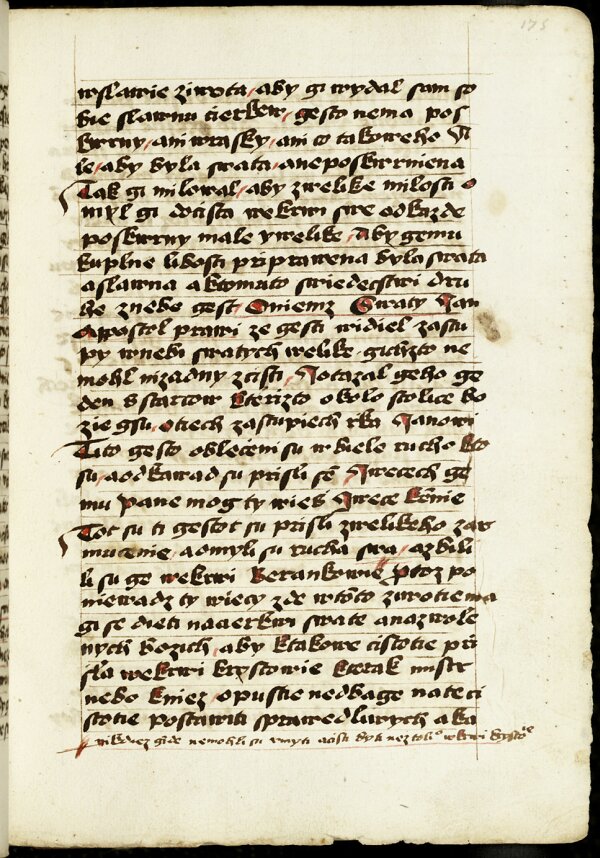 175
wslawie ziwota, aby gi wydal sam so
bie slawnu cierkew, gesto nema pos
kwrny, ani wrasky, ani co takoweho
le, aby byla swata, aneposkwrniena
Tak gi milowal, aby zwelike milosti o
myl gi docista wekrwi swe odkazde
poskwrny male ywelike, Aby gemu
kuplne libosti przprawena byla swata
aslawna aktomuto swiedecstwi dru
he znebe gest, Oniemz Swaty Jan
Appostol prawi ze gest widiel zastu
py wnebi swatych welike, gichzto ne
mohl nizadny zcisti, Jotazal geho ge
den Sstarcow kterizto okolo stolice bo
zie gsu, otiech zastupiech rka Janowi
Tito gesto obleceni su wbiele rucho kto
su, aodkawad su prisli sē, Jwecech ge
mu pane mog ty wies Jwece kēnie
Tot su ti gestot su prisli zwelikeho zar
mucenie, aomyli su rucha swa, azbili
li su ge wekrwi Berankowie Protoz po
niewadz ty wiecy zde wtōto ziwotie ma
gi se dieti nacierkwi swate anazwole
nych bozich, aby ktakowe cistotie pri
sla wekrwi krystowie kterak mistr
nebo kniez, opustie nedbage nateci
stotie postawiti sprawedlwych aka